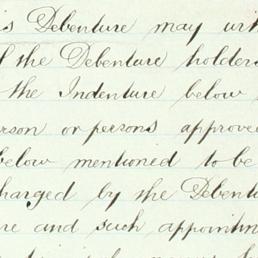 is Debenture may
of the Debenture holders
the Indenture below
erson or persons approve
below mentioned to be
harged by the Debentu
re and such appointm